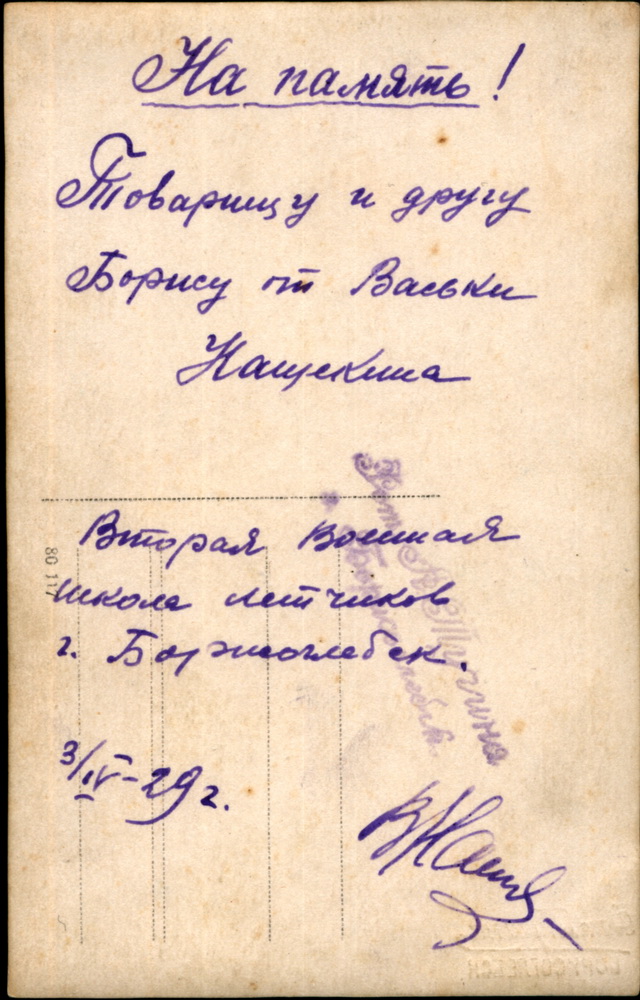 На память!
Товарищу и другу
Борису от Васьки
Нащекина
Вторая Военная
школа летчиков
г. Борисоглебск.
3/IV-29 г.
80 117